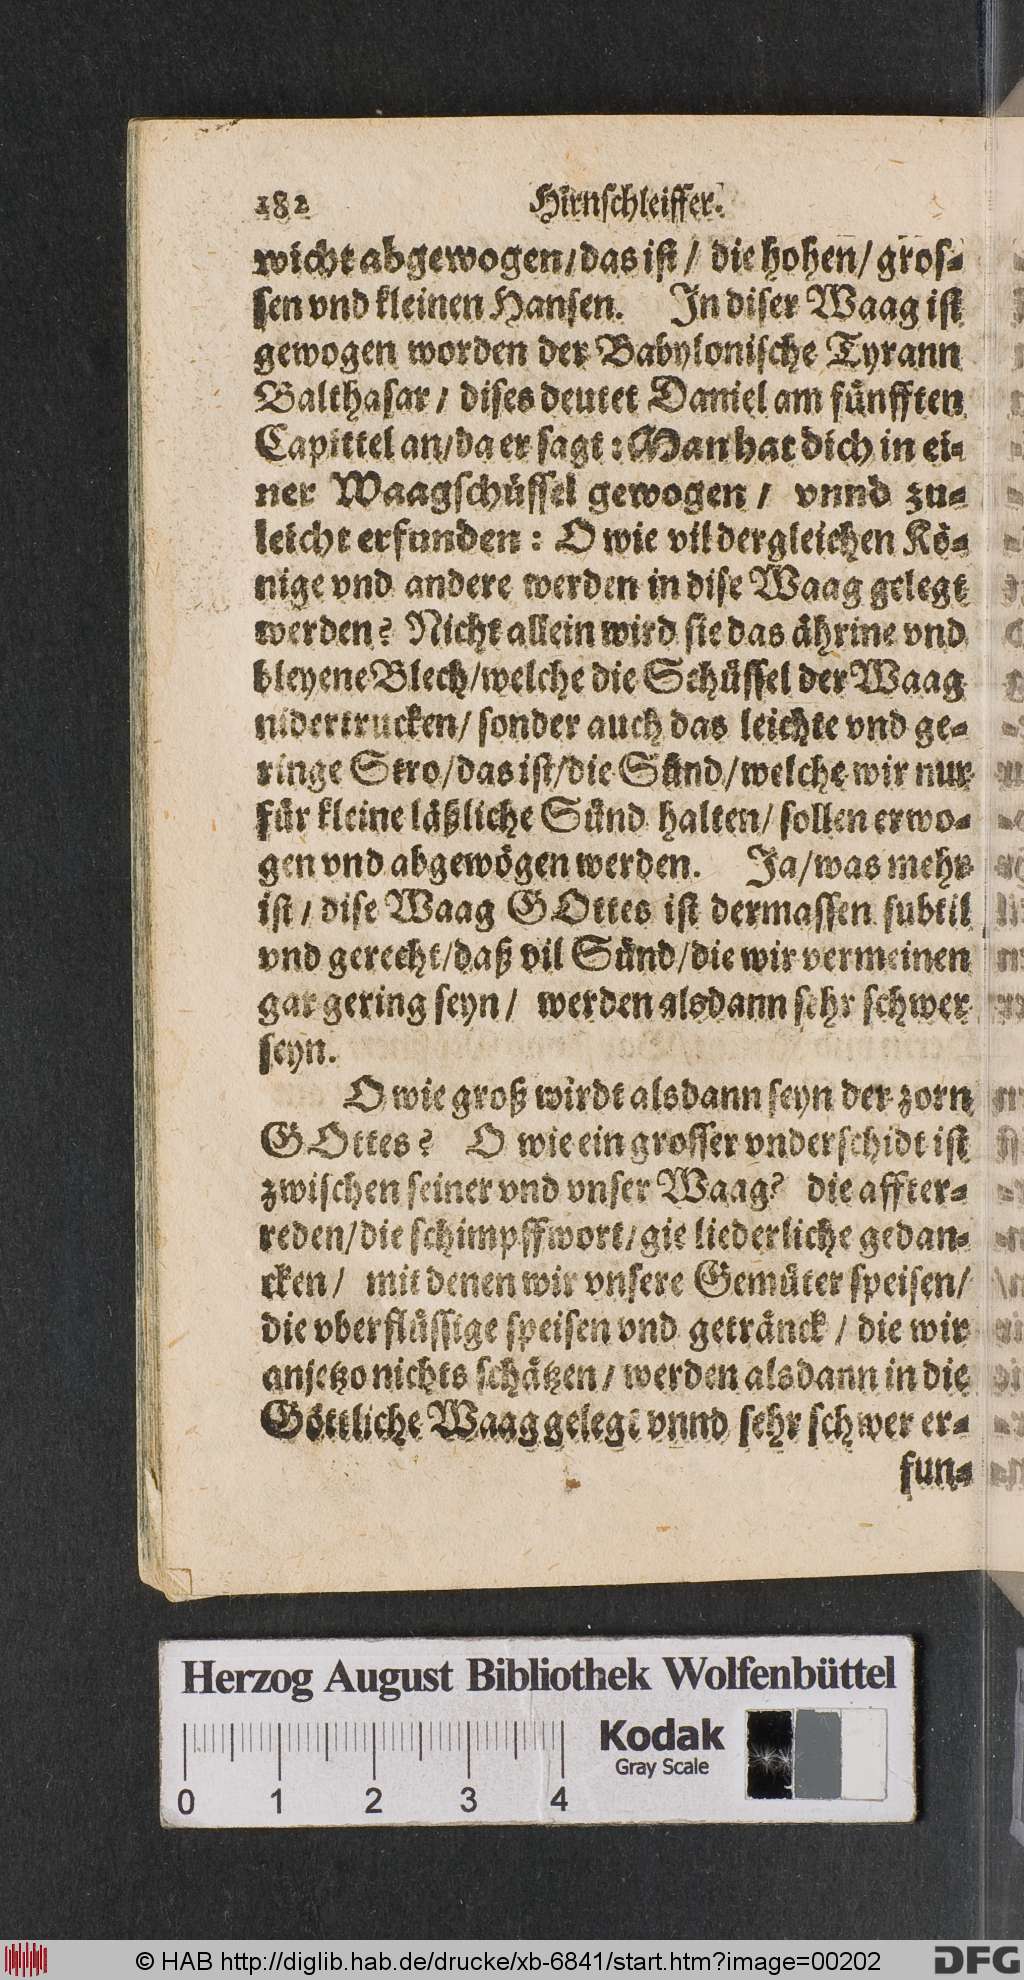 182 Hirnschleiffer.
wicht abgewogen/das ist/ die hohen/ gros-
sen vnd kleinen Hansen. In diser Waag ist
gewogen worden der Babylonische Tyrann
Balthasar/ dises deutet Daniel am fünfften
Capittel an/da er sagt: Man hat dich in ei-
ner Waagschüssel gewogen/ vnnd zu-
leicht erfunden: O wie vil dergleichen Kö-
nige vnd andere werden in dise Waag gelegt
werden? Nicht allein wird sie das ährine vnd
bleyene Blech/welche die Schüssel der Waag
nidertrucken/ sonder auch das leichte vnd ge-
ringe Stro/das ist/die Sünd/welche wir nur
für kleine läßliche Sünd halten/ sollen erwo-
gen vnd abgewögen werden. Ja/was mehr
ist/ dise Waag GOttes ist dermassen subtil
vnd gerecht/daß vil Sünd/die wir vermeinen
gar gering seyn/ werden alsdann sehr schwer
seyn.
O wie groß wirdt alsdann seyn der zorn
GOttes? O wie ein grosser vnderschidt ist
zwischen seiner vnd vnser Waag? die affter-
reden/die schimpffwort/gie liederliche gedan-
cken/ mit denen wir vnsere Gemüter speisen/
die vberflüssige speisen vnd getränck/ die wir
anjetzo nichts schätzen/ werden alsdann in die
Göttliche Waag gelegt vnnd sehr schwer er-
fun-
Herzog August Bibliothek Wolfenbüttel
Kodak
Gray Scale
0 1 2 3 4
© HAB http://diglib.hab.de/drucke/xb-6841/start.htm?image=00202
DFG